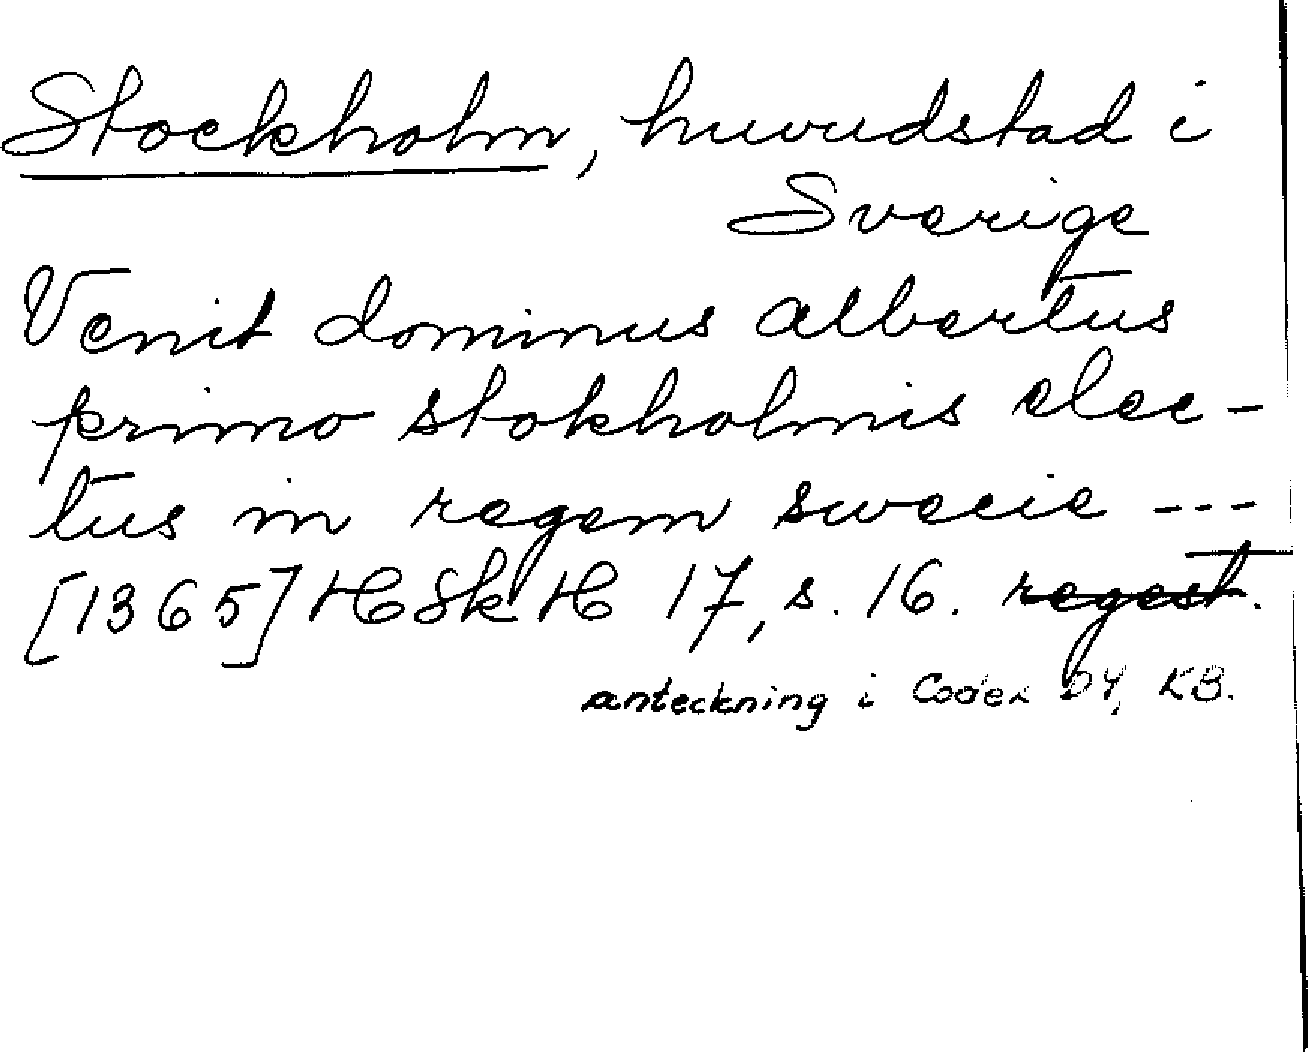 Stockholm, huvudstad i
Sverige
Venit dominus albertus
primo stokholmis elec-
tus in regem swecie ---
[1365] HSkH 17, s. 16. regest.
anteckning i Codex D4, KB.